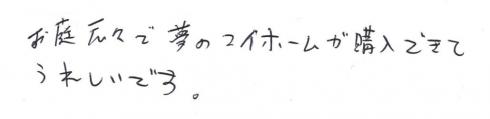 お庭広々で夢のマイホームが購入できて
うれしいです。